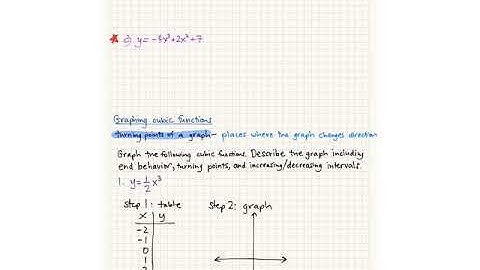 c) y = -3x³ + 2x² + 7
Graphing cubic functions
turning points of a graph - places where the graph changes direction
Graph the following cubic functions. Describe the graph including
end behavior, turning points, and increasing/decreasing intervals.
1. y = 1/2 x³
Step 1: table Step 2: graph
x y
-2
-1
0
1